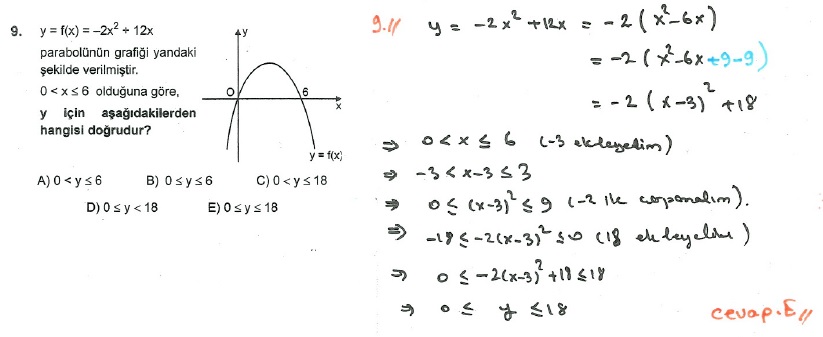 9. y = f(x) = –2x² + 12x
parabolünün grafiği yandaki
şekilde verilmiştir.
0 < x ≤ 6 olduğuna göre,
y için aşağıdakilerden
hangisi doğrudur?
y
O
6
x
y = f(x)
A) 0 < y ≤ 6 B) 0 ≤ y ≤ 6 C) 0 < y ≤ 18
D) 0 ≤ y < 18 E) 0 ≤ y ≤ 18
9.// y = -2x² +12x = -2(x²-6x)
= -2(x²-6x+9-9)
= -2(x-3)² +18
⇒ 0 < x ≤ 6 (-3 ekleyelim)
⇒ -3 < x-3 ≤ 3
⇒ 0 ≤ (x-3)² ≤ 9 (-2 ile çarpalım).
⇒ -18 ≤ -2(x-3)² ≤ 0 (18 ekleyelim)
⇒ 0 ≤ -2(x-3)²+18 ≤ 18
⇒ 0 ≤ y ≤ 18
cevap.E//